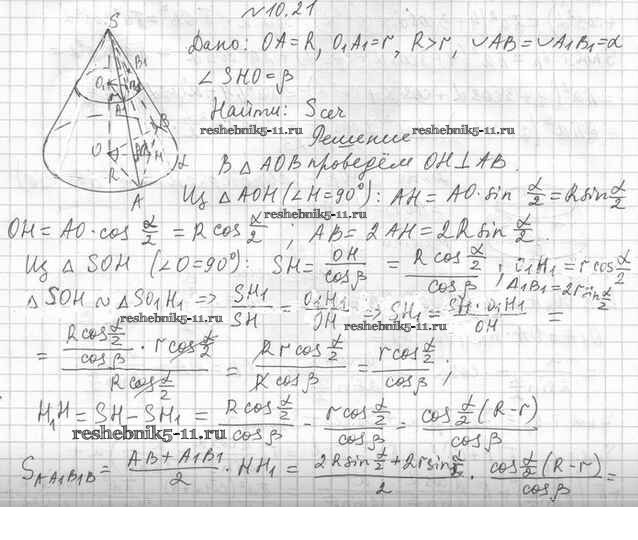 №10.21
Дано: OA=R, O₁A₁=r, R>r, ∪AB=∪A₁B₁=α
∠SHO=β
Найти: Sсеч
reshebnik5-11.ru
reshebnik5-11.ru
Решение
В △AOB проведём OH⊥AB.
Из △AOH (∠H=90°): AH=AO·sin α/2=R sin α/2
reshebnik5-11.ru
OH=AO·cos α/2=R cos α/2; AB=2AH=2R sin α/2
Из △SOH (∠O=90°): SH=OH/cosβ=(R cos α/2)/cosβ; O₁H₁=r cos α/2
A₁B₁=2r sin α/2
△SOH ∾ △SO₁H₁ => SH₁/SH=O₁H₁/OH => SH₁=(SH·O₁H₁)/OH=
reshebnik5-11.ru
reshebnik5-11.ru
=((R cos α/2)/cosβ · r cos α/2)/(R cos α/2)=(R r cos α/2)/(R cosβ)=(r cos α/2)/cosβ;
H₁H=SH-SH₁=(R cos α/2)/cosβ-(r cos α/2)/cosβ=(cos α/2 (R-r))/cosβ
reshebnik5-11.ru
S AA₁B₁B=(AB+A₁B₁)/2·HH₁=(2R sin α/2+2r sin α/2)/2·(cos α/2 (R-r))/cosβ=
S
O₁
B₁
A₁
O
R
H
B
A
α